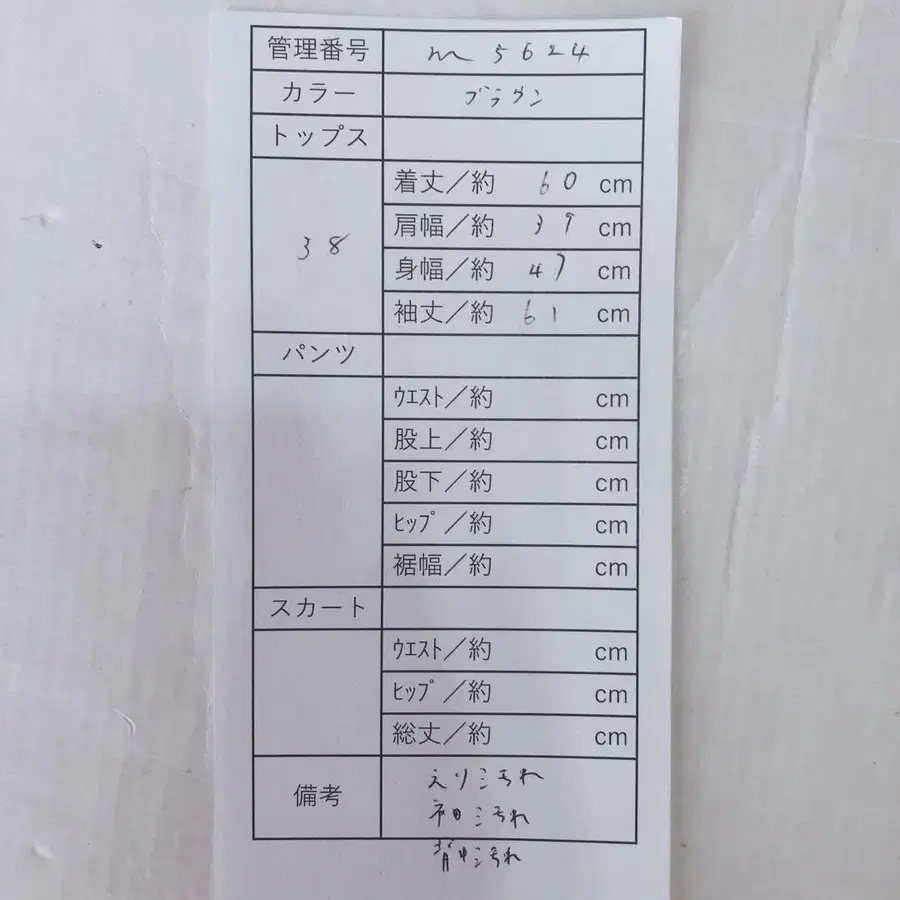 管理番号 m 5624
カラー ブラウン
トップス
38
着丈／約 60 cm
肩幅／約 39 cm
身幅／約 47 cm
袖丈／約 61 cm
パンツ
ｳｴｽﾄ／約 cm
股上／約 cm
股下／約 cm
ﾋｯﾌﾟ／約 cm
裾幅／約 cm
スカート
ｳｴｽﾄ／約 cm
ﾋｯﾌﾟ／約 cm
総丈／約 cm
備考
えり汚れ
袖汚れ
背中汚れ